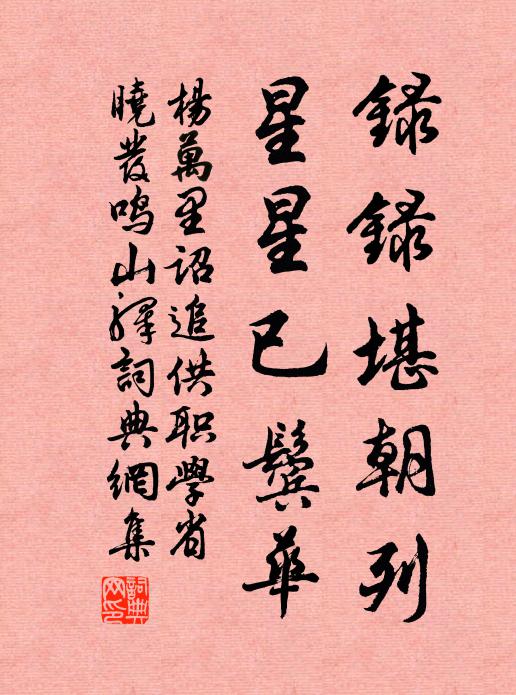 録録堪朝列
星星已鬓華
楊萬里詔追供职學省
曉發鸣山驛詞典網集
詞典网印